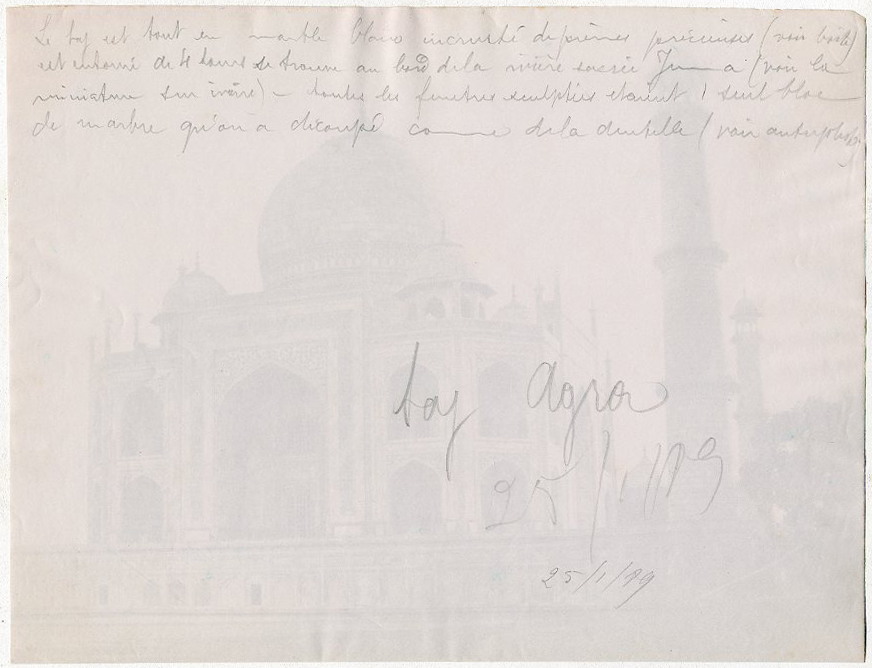 Le taj est tout en marbre blanc incrusté de pierres précieuses (voir boîte)
est entouré de 4 tours se trouve au bord de la rivière sacrée Jumna (voir la
miniature sur ivoire) – toutes les fenetres sculptées etaient 1 seul bloc
de marbre qu'on a découpé comme de la dentelle (voir autre photo)
taj Agra
25/1/89
25/1/89